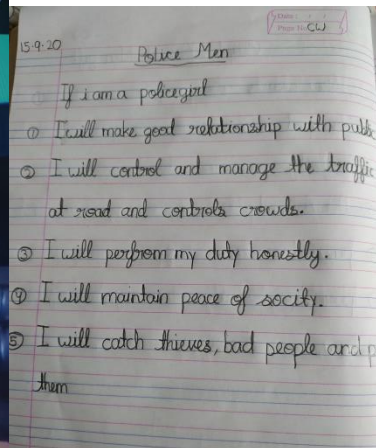 Date: / /
Page No. CW
15.9.20
Police Men
If i am a policegirl
① I will make good relationship with public
② I will control and manage the traffic
at road and controls crowds.
③ I will perfrom my duty honestly.
④ I will maintain peace of socity.
⑤ I will catch thieves, bad people and p
them